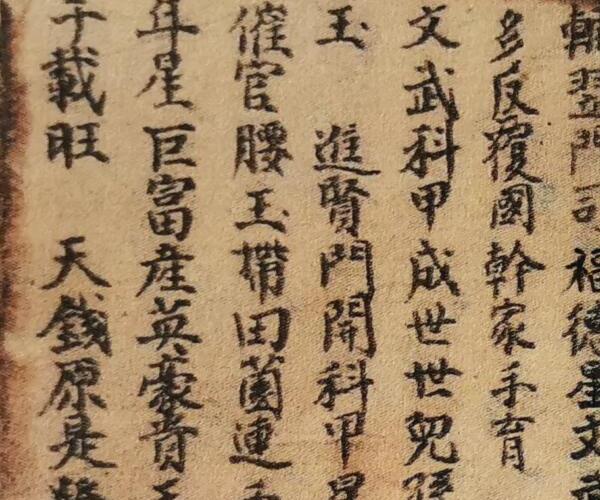 輔翌門司　福德星文武
多反覆國幹家手育
文武科甲成世世兒孫
玉　進賢門開科甲星
催官腰玉帶田蘭連
年星巨富産英豪貴玉
載旺　天錢原是